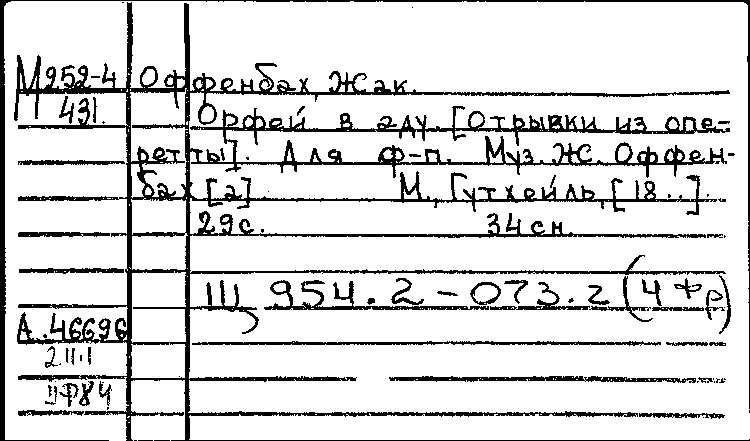 М 252-4 Оффенбах, Жак.
431. Орфей в аду. [Отрывки из опе-
ретты]. Для ф-п. Муз. Ж. Оффен-
бах[а] М., Гутхейль, [18..].
29с. 34сн.
Щ 954.2-073.2 (4 Фр)
А.46696
2.II.1